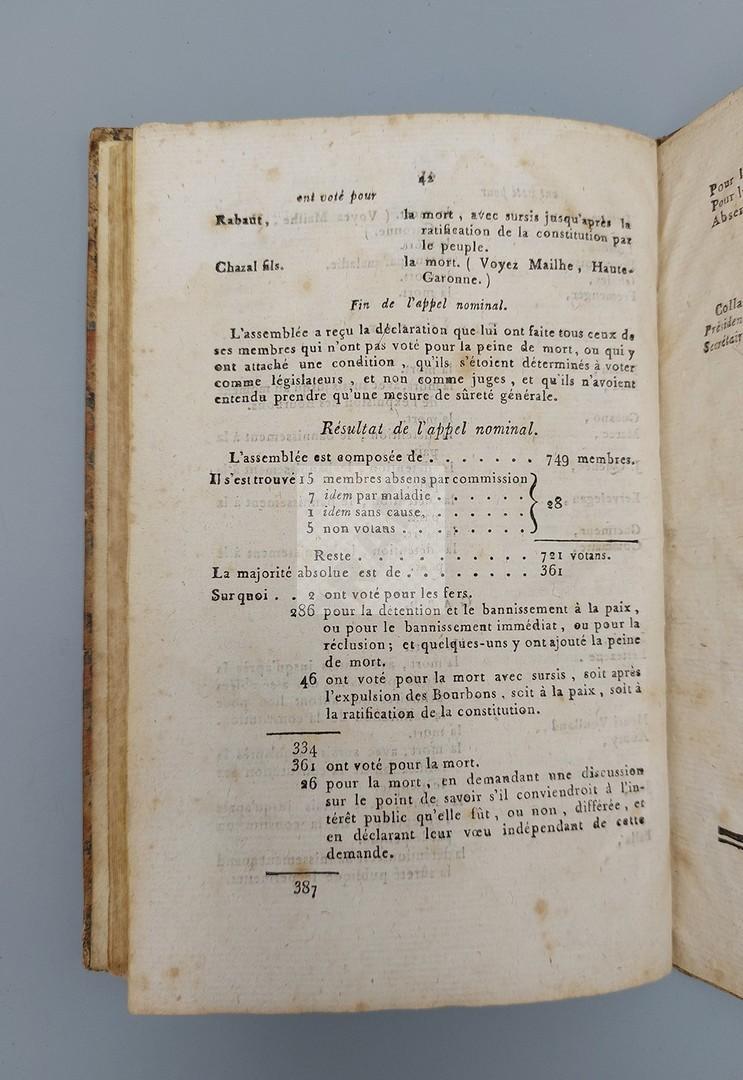 42
ont voté pour
Rabaut, la mort, avec sursis jusqu'après la
ratification de la constitution par
le peuple.
Chazal fils. la mort. ( Voyez Mailhe, Haute-
Garonne. )
Fin de l'appel nominal.
L'assemblée a reçu la déclaration que lui ont faite tous ceux de
ses membres qui n'ont pas voté pour la peine de mort, ou qui y
ont attaché une condition, qu'ils s'étoient déterminés à voter
comme législateurs, et non comme juges, et qu'ils n'avoient
entendu prendre qu'une mesure de sûreté générale.
Résultat de l'appel nominal.
L'assemblée est composée de . . . . . . . 749 membres.
Il s'est trouvé 15 membres absens par commission
7 idem par maladie . . . . . .
1 idem sans cause, . . . . . .
5 non votans . . . . . . . .
} 28
Reste . . . . . . . . . . . 721 votans.
La majorité absolue est de . . . . . . . . 361
Sur quoi . . 2 ont voté pour les fers.
286 pour la détention et le bannissement à la paix,
ou pour le bannissement immédiat, ou pour la
réclusion; et quelques-uns y ont ajouté la peine
de mort.
46 ont voté pour la mort avec sursis, soit après
l'expulsion des Bourbons, soit à la paix, soit à
la ratification de la constitution.
334
361 ont voté pour la mort.
26 pour la mort, en demandant une discussion
sur le point de savoir s'il conviendroit à l'in-
térêt public qu'elle fût, ou non, différée, et
en déclarant leur vœu indépendant de cette
demande.
387
Pour l
Pour l
Absen
Colla
Présiden
Secrétair